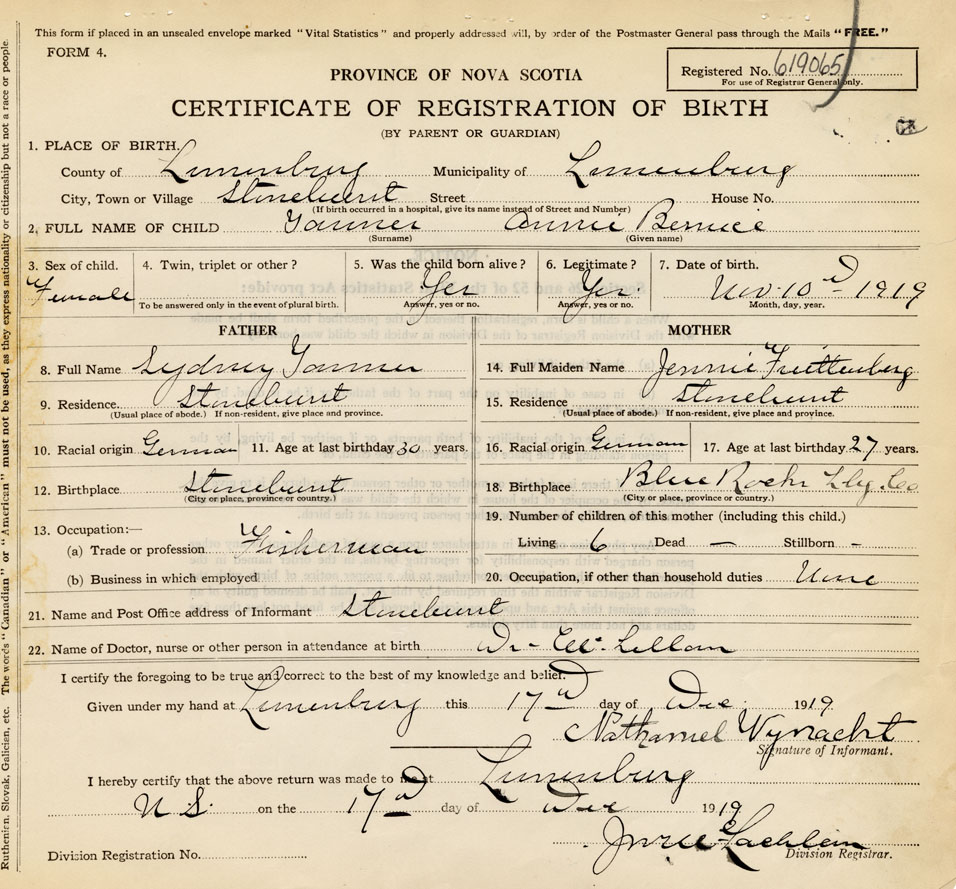 This form if placed in an unsealed envelope marked "Vital Statistics" and properly addressed will, by order of the Postmaster General pass through the Mails "FREE."
FORM 4.
Registered No. 619065
For use of Registrar General only.
PROVINCE OF NOVA SCOTIA
CERTIFICATE OF REGISTRATION OF BIRTH
(BY PARENT OR GUARDIAN)
1. PLACE OF BIRTH.
County of Lunenburg Municipality of Lunenburg
City, Town or Village Stonehurst Street House No.
(If birth occurred in a hospital, give its name instead of Street and Number)
2. FULL NAME OF CHILD Tanner Annie Bernice
(Surname) (Given name)
3. Sex of child. 4. Twin, triplet or other? 5. Was the child born alive? 6. Legitimate? 7. Date of birth.
Female Yes Yes Nov. 10d 1919
To be answered only in the event of plural birth. Answer, yes or no. Answer, yes or no. Month, day, year.
FATHER MOTHER
8. Full Name Sydney Tanner 14. Full Maiden Name Jennie
9. Residence Stonehurst 15. Residence Stonehurst
(Usual place of abode.) If non-resident, give place and province. (Usual place of abode.) If non-resident, give place and province.
10. Racial origin German 11. Age at last birthday 30 years. 16. Racial origin German 17. Age at last birthday 27 years.
12. Birthplace Stonehurst 18. Birthplace Blue Rocks Lbg. Co
(City or place, province or country.) (City or place, province or country.)
13. Occupation:— 19. Number of children of this mother (including this child.)
(a) Trade or profession Fisherman Living 6 Dead — Stillborn -
(b) Business in which employed 20. Occupation, if other than household duties
21. Name and Post Office address of Informant Stonehurst
22. Name of Doctor, nurse or other person in attendance at birth Dr-
I certify the foregoing to be true and correct to the best of my knowledge and belief.
Given under my hand at Lunenburg this 17d day of Dec 1919.
Nathaniel Wynacht
Signature of Informant.
I hereby certify that the above return was made to me at Lunenburg
N. S. on the 17d day of Dec 1919
Division Registration No. Division Registrar.
Ruthenien, Slovak, Galicien, etc. The words "Canadian" or "American" must not be used, as they express nationality or citizenship but not a race or people.